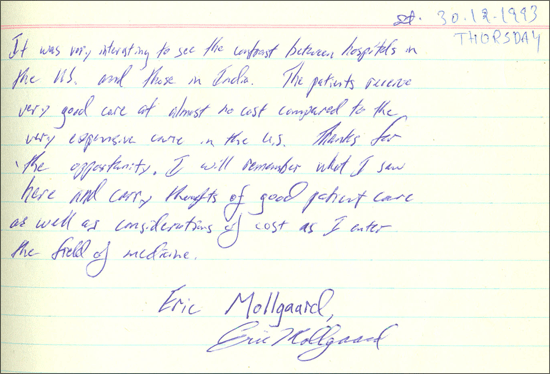 30.12.1993
THORSDAY
It was very interesting to see the contrast between hospitals in
the U.S. and those in India. The patients receive
very good care at almost no cost compared to the
very expensive care in the U.S. Thanks for
the opportunity. I will remember what I saw
here and carry thoughts of good patient care
as well as considerations of cost as I enter
the field of medicine.
Eric Mollgaard,
Eric Mollgaard